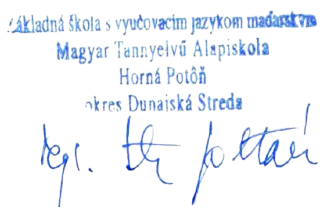 Základná škola s vyučovacím jazykom maďarským
Magyar Tannyelvű Alapiskola
Horná Potôň
okres Dunajská Streda
Mgr. Zoltán